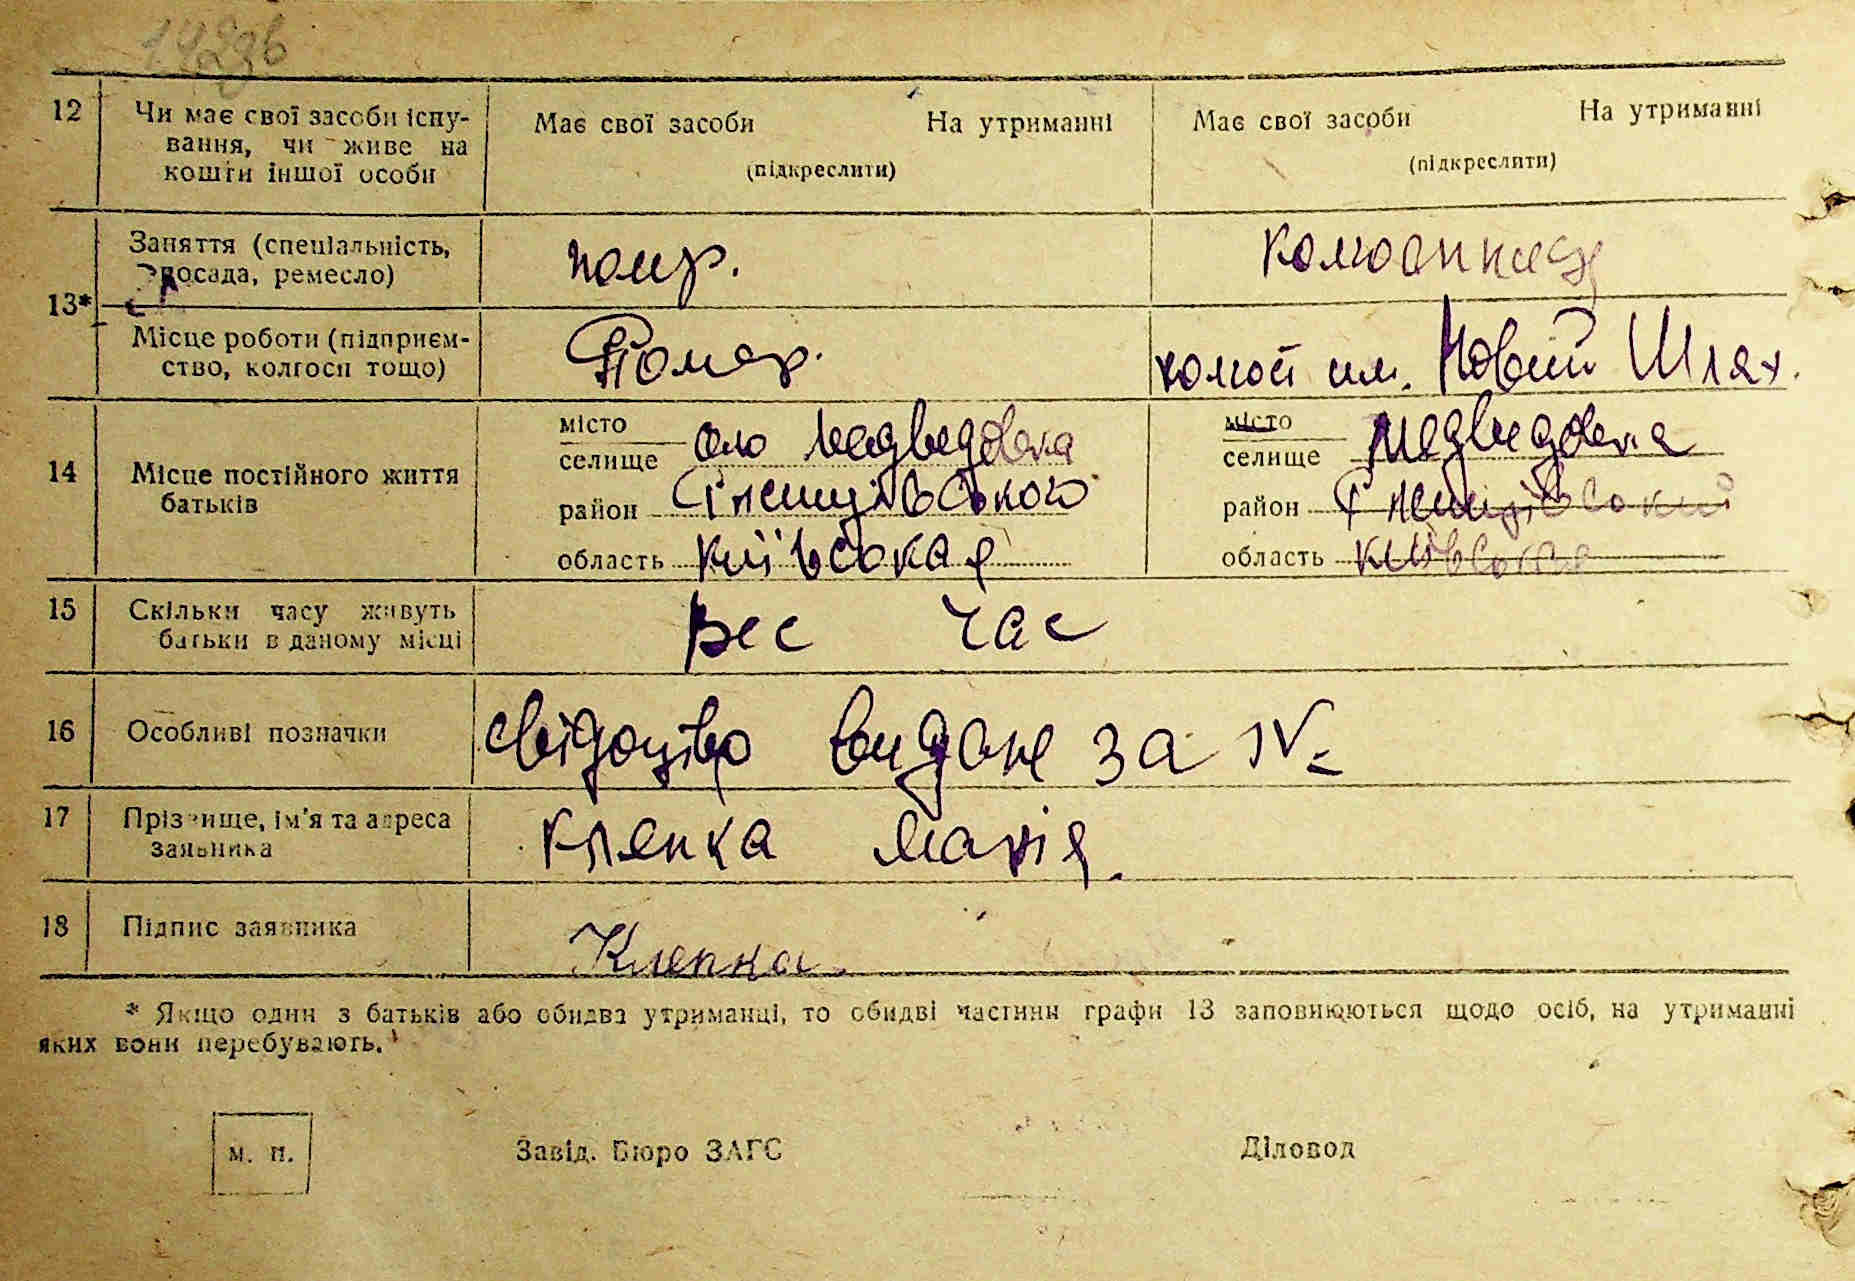 142зв
12 Чи має свої засоби існу- Має свої засоби На утриманні Має свої засоби На утриманні
вання, чи живе на (підкреслити) (підкреслити)
кошти іншої особи
13* Заняття (спеціальність, помр. колгоспниця
посада, ремесло)
Місце роботи (підприєм- Помер. колгосп им. Новий Шлях.
ство, колгосп тощо)
14 Місце постійного життя батьків
місто село Медведовка місто Медведовка
селище селище
район район
область київсокая область київсокая
15 Скільки часу живуть вес час
батьки в даному місці
16 Особливі позначки свідоцтво видане за №
17 Прізвище, ім'я та адреса Клепка Марія.
заявника
18 Підпис заявника Клепка.
* Якщо один з батьків або обидва утриманці, то обидві частини графи 13 заповнюються щодо осіб, на утриманні
яких вони перебувають.
м. п. Завід. Бюро ЗАГС Діловод